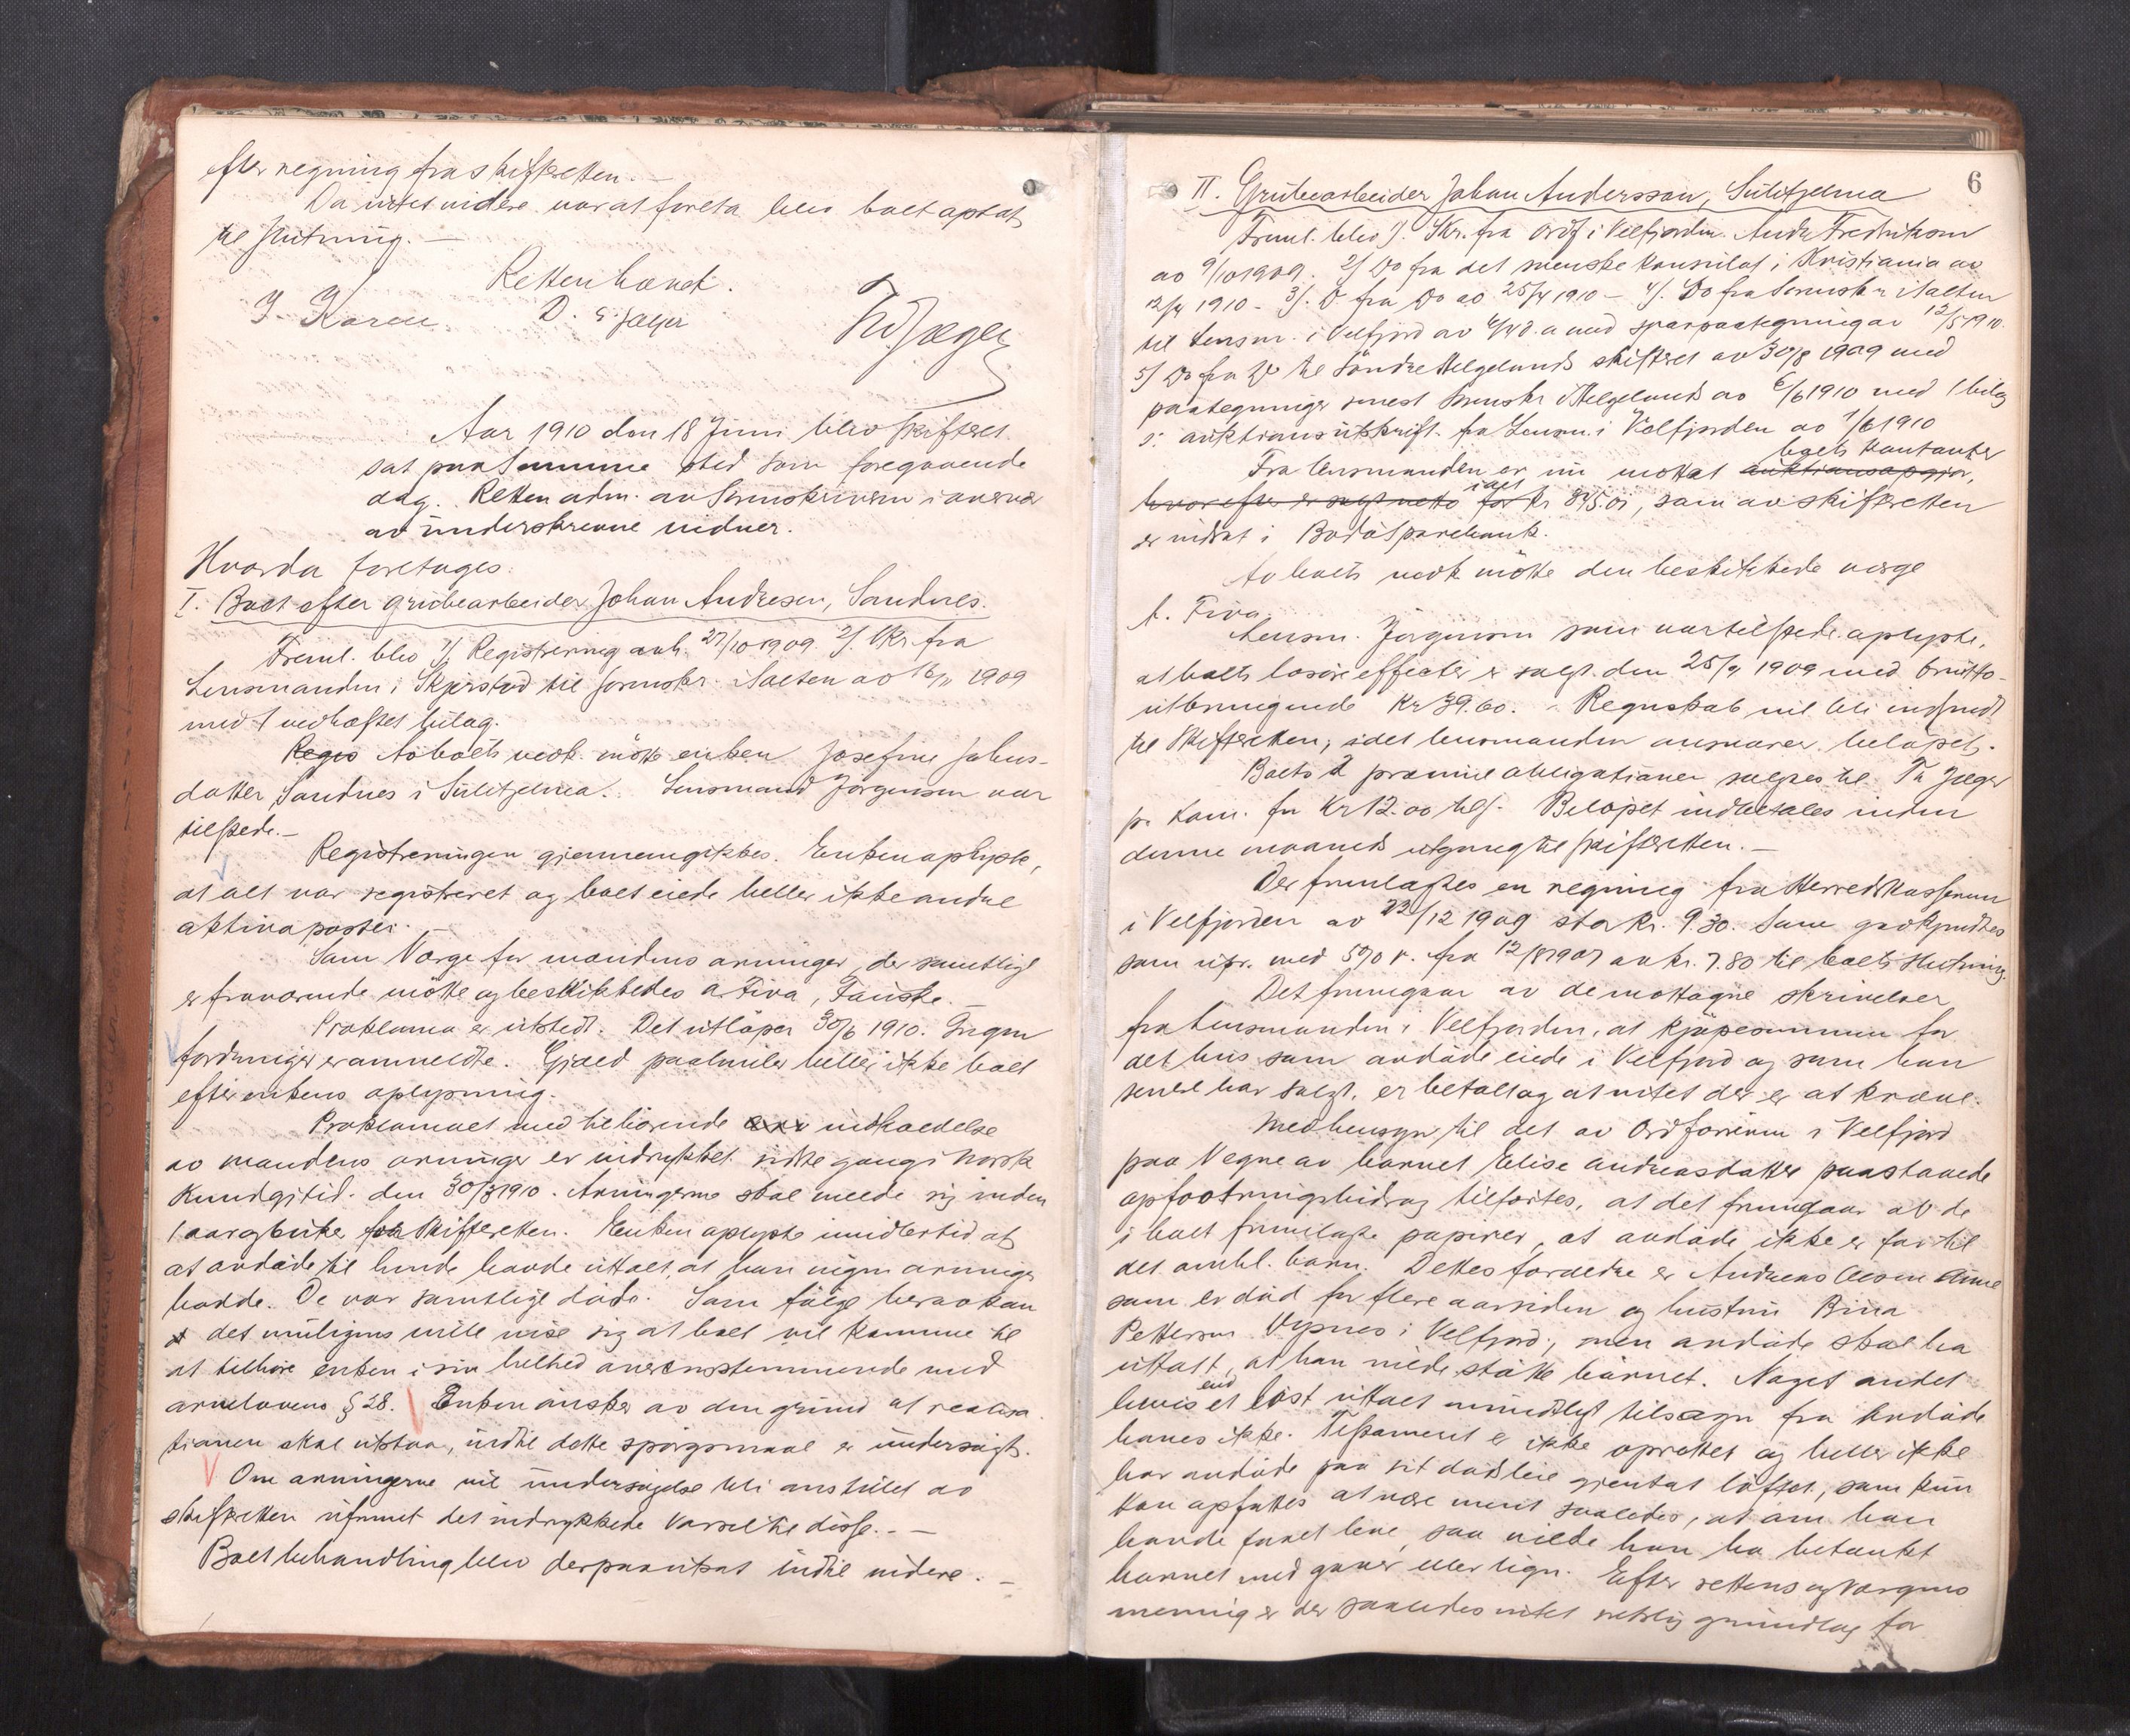 efter regning fra skifteretten.—
Da intet videre var at foreta blev boet optat
til slutning.—
Retten hævet.
Aar 1910 den 18 Juni blev skifteret
sat paa samme sted som foregaaende
dag. Retten adm. av Sorenskriveren i overvær
av underskrevne vidner.
Hvorda foretages:
I. Boet efter grubearbeider Johan Andresen, Sandnes.
Freml. blev 1/ Registrering avh. 27/10 1909 2/. Skr. fra
Lensmanden i Skjerstad til sorenskr. i Salten av 16/11 1909
med 1 vedhæftet bilag.
Regis Av boets vedk. møtte enken Josefine Johns-
datter Sandnes i Sulitjelma. Lensmand Jörgensen var
tilstede.—
Registreringen gjennemgikkes. Enken oplyste,
at alt var registreret og boet eiede heller ikke andre
aktivaposter.
Som Værge for mandens arvinger, der samtlige
er fraværende møtte og beskikkedes A. Fiva, Fauske.—
Proklama er utstedt. Det utløper 30/6 1910. Ingen
fordringer er anmeldte. Gjæld paahviler heller ikke boet
efter enkens oplysning.
Proklamaet med tilhörende indkaldelse
av mandens arvinger er indrykket sidste gang i Norsk
Kundgj.tid. den 30/3 1910. Arvingerne skal melde sig inden
1 aar og 6 uker for skifteretten. Enken oplyste imidlertid at
at avdøde til hende havde uttalt, at han ingen arvinger
hadde. De var samtlige døde. Som følge herav kan
det muligens ville vise sig at boet vil komme til
at tilhøre enken i sin helhed overensstemmende med
arvelovens § 28. Enken ønsker av den grund at realisa
tionen skal utstaa, indtil dette spørgsmaal er undersøgt.
Om arvingerne vil undersøgelse bli anstillet av
skifteretten ufremt det indrykkede varsel til disse.—
Boets behandling blev derpaa utsat indtil videre.—
6
II. Grubearbeider Johan Andersson, Sulitjelma
Freml. blev 1/. Skr. fra Ordf. i Velfjorden. Andr. Fredriksen
av 9/10 1909. 2/ Do fra det svenske konsulat i Kristiania av
12/4 1910 - 3/. D. fra Do av 25/4 1910 - 4/. Do fra Sorenskr. i Salten
til Lensm. i Velfjord av 4/4 d.a med svarpaategning av 12/5 1910.
5/ Do fra Do til Söndre Helgelands skifteret av 30/8 1909 med
paategninger senest Sorenskr. i Helgeland av 6/6 1910 med 1 bilag
ɔ: auktionsutskrift fra Lensm. i Velfjorden av 1/6 1910
boets kontanter
Fra lensmanden er nu mottat auktionsopgjør,
ialt
hvorefter er solgt netto for kr 845.01, som av skifteretten
er indsat i Bodø Sparebank.
Av boets vedk møtte den beskikkede værge
A. Fiva.
Lensm. Jörgensen som var tilstede oplyste,
at boets løsøreeffecter er solgt den 25/9 1909 med brutto-
utbringende Kr 39.60. Regnskab vil bli indsendt
til skifteretten, idet lensmanden ansvarer beløpet.
Boets 2 præmieobligationer sælges til Th Jæger
pr. kom. for Kr 12.00 tils. Beløpet indbetales inden
denne maaneds utgang til skifteretten.—
Der fremlagtes en regning fra Herredskasseren
i Velfjorden av 23/12 1909 stor kr. 9.30. Same godkjendtes
som upr. med 5% r. fra 12/8 1907 av kr. 7.80 til boets slutning.
Det fremgaar av de mottagne skrivelser
fra lensmanden i Velfjorden, at kjøpesummen for
det hus som avdøde eiede i Velfjord og som han
senere har solgt, er betalt og at intet der er at kræve.
Med hensyn til det av Ordføreren i Velfjord
paa Vegne av barnet Elise Andreasdatter paastaaede
opfostringsbidrag tilførtes, at det fremgaar av de
i boet fremlagte papirer, at avdøde ikke er far til
det omhl. barn. Dettes forældre er Andreas Olsen Aune
som er død for flere aar siden og hustru Rina
Pettersen Vysnes i Velfjord; men avdøde skal ha
uttalt, at han vilde støtte barnet. Noget andet
end
bevis et løst uttalt mundtligt tilsagn fra avdøde
haves ikke. Testament er ikke oprettet og heller ikke
har avdøde paa sit dødsleie gjentat løftet, som kun
kan opfattes at være ment saaledes, at om han
havde faaet leve, saa vilde han ha betænkt
barnet med gaver eller lign. Efter rettens og værgens
mening er der saaledes intet retslig grundlag for